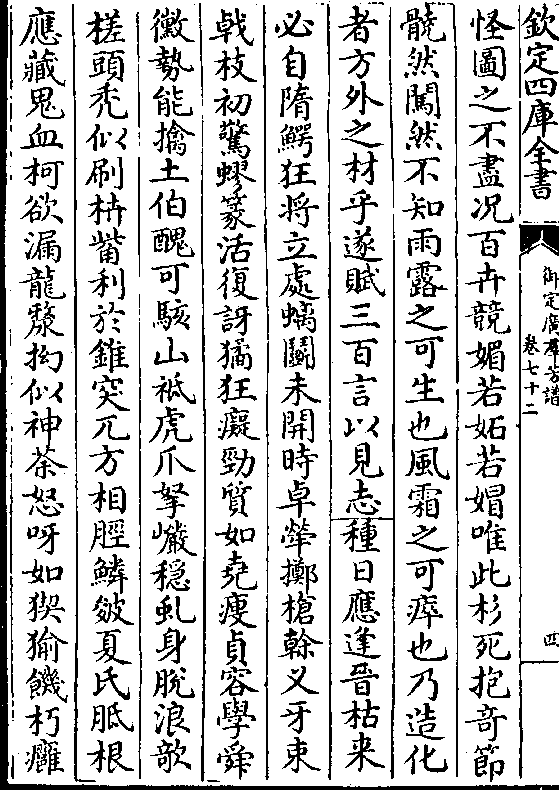 欽定四庫全書
御定廣羣芳譜
卷七十二
四
怪圖之不盡况百卉競媚若妬若媢唯此杉死抱竒節
髐然闖然不知雨露之可生也風霜之可瘁也乃造化
者方外之材乎遂賦三百言以見志種日應逢晉枯来
必自隋鰐狂将立處螭鬭未開時卓犖擲槍榦义牙束
㦸枝初驚蟉篆活復訝獝狂癡勁質如堯瘦貞容學舜
黴勢能擒土伯醜可駭山祗虎爪拏巖穩虬身脫浪欹
槎頭秃似刷枿觜利於錐突兀方相脛鱗皴夏氏胝根
應藏鬼血柯欲漏龍漦拗似神荼怒呀如猰㺄饑朽癰